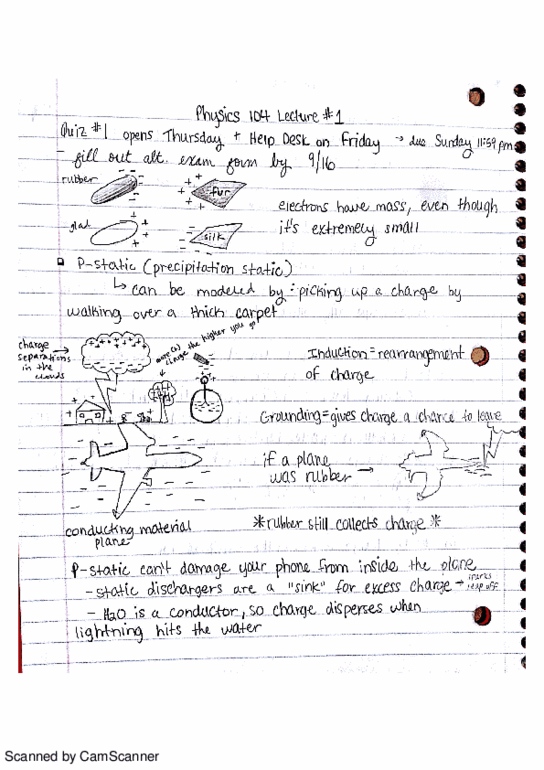 Physics 104 Lecture #1
Quiz #1 opens Thursday + Help Desk on Friday → due Sunday 11:59 pm
- fill out alt. exam form by 9/16
rubber
fur
electrons have mass, even though
it's extremely small
silk
P-static (precipitation static)
↳ can be modeled by: picking up a charge by
walking over a thick carpet
charge
separations →
in the
clouds
charge the higher you go
Induction = rearrangement
of charge
Grounding = gives charge a chance to leave
if a plane
was rubber →
conducting material
plane
*rubber still collects charge*
P-static can't damage your phone from inside the plane
- static dischargers are a "sink" for excess charge →
- H2O is a conductor, so charge disperses when
lightning hits the water
Scanned by CamScanner